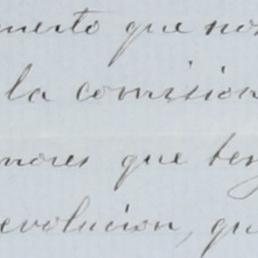 muerto que nos
la comision
nores que ten
evolucion, qu